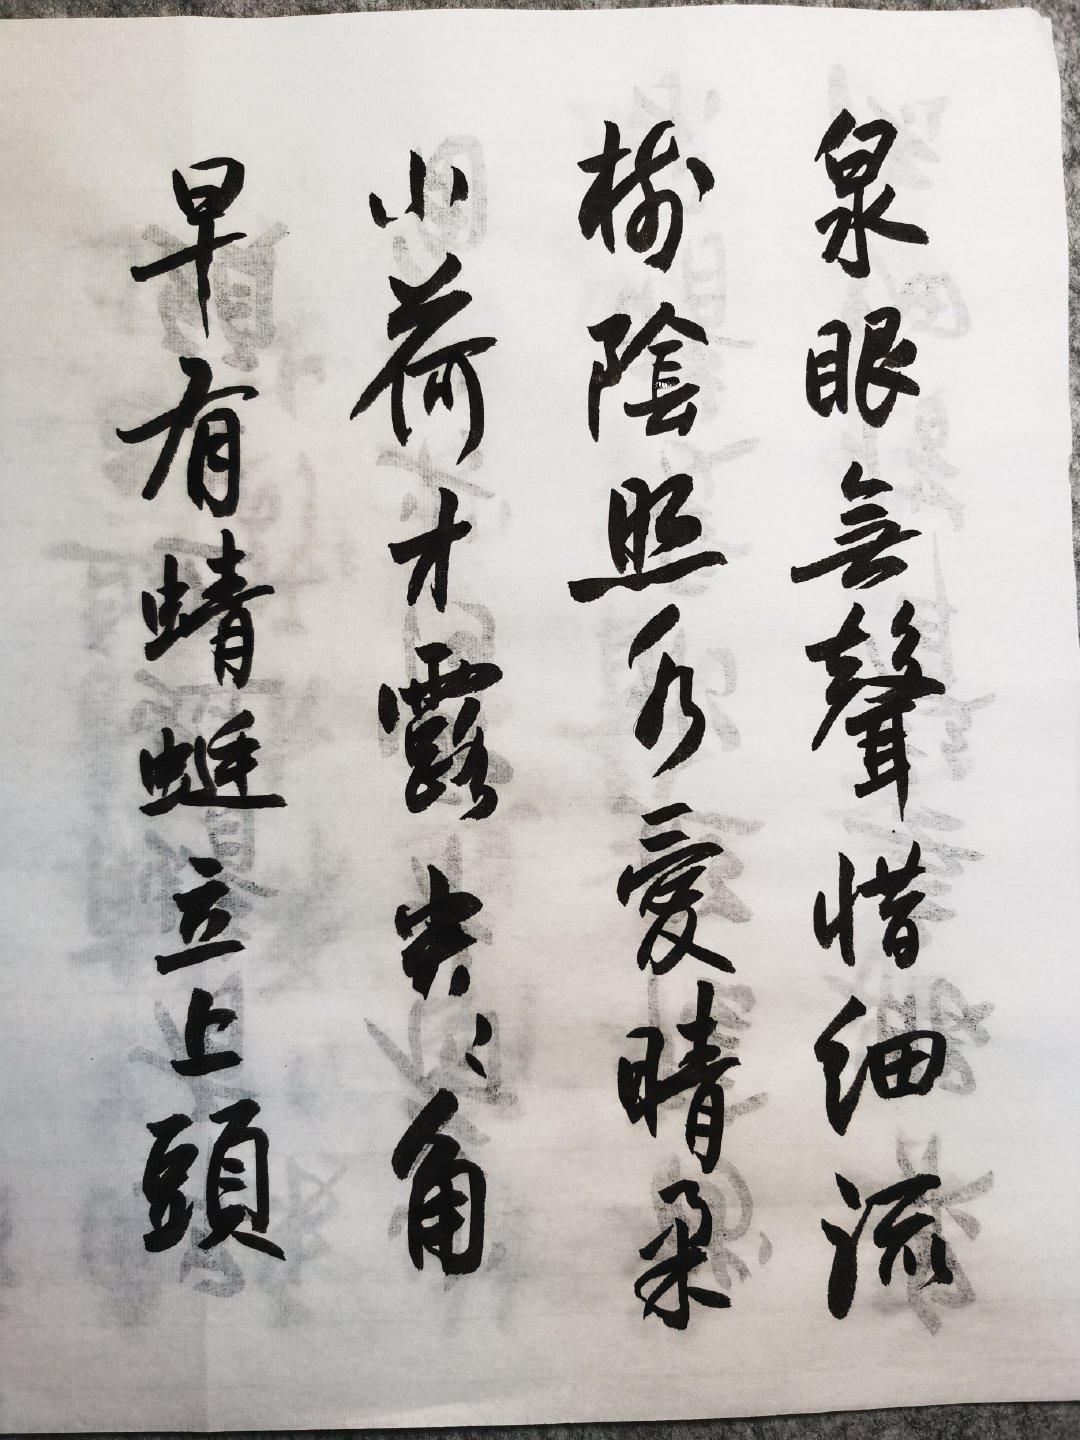 泉眼無聲惜细流
樹陰照水愛晴柔
小荷才露尖〻角
早有蜻蜓立上頭